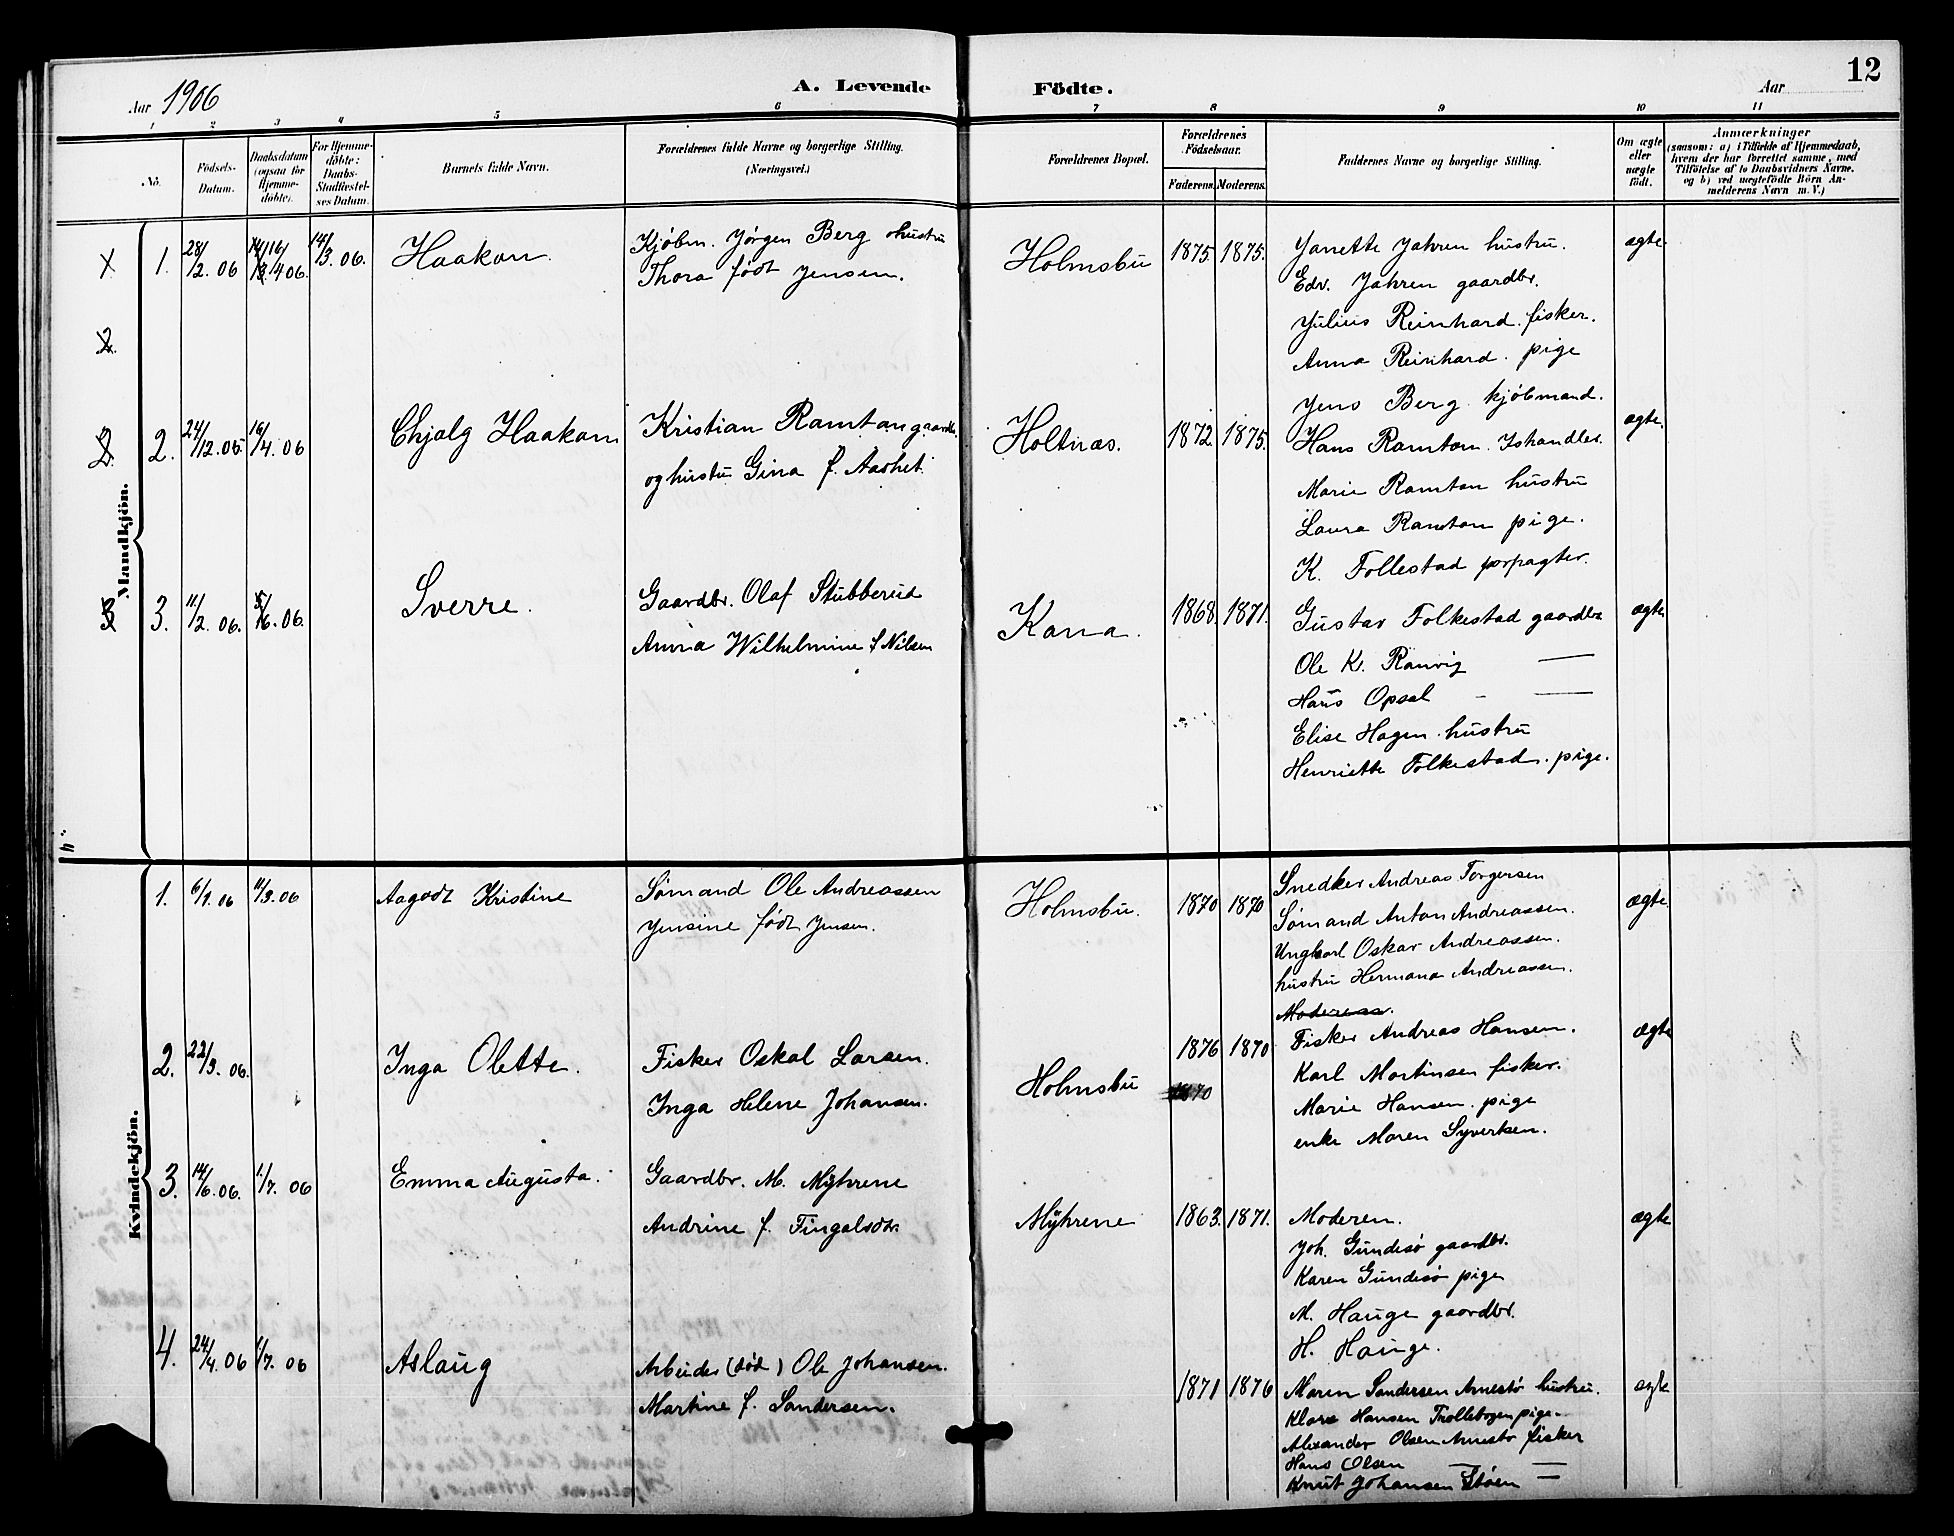 12
Aar 1906
A. Levende Födte.
Aar
1 2 3 4 5 6 7 8 9 10 11
No.
Födsels-Datum.
Daabsdatum (ogsaa for Hjemmedöbte).
For Hjemmedöbte: Daabs-Stadfæstelses Datum.
Barnets fulde Navn.
Forældrenes fulde Navne og borgerlige Stilling. (Næringsvei.)
Forældrenes Bopæl.
Forældrenes Födselsaar.
Faderens. Moderens.
Faddernes Navne og borgerlige Stilling.
Om ægte eller uægte födt.
Anmærkninger
(saasom: a) i Tilfælde af Hjemmedaab, hvem der har forrettet samme, med Tilföielse af to Daabsvidners Navne, og b) ved uægtefödte Börn Anmelderens Navn m. V.)
Mandkjön.
1. 28/2. 06 16/4 06. 14/3. 06. Haakon. Kjøbm. Jørgen Berg ohustru
Thora født Jensen.
Holmsbu 1875. 1875. Janette Jahren hustru. ægte.
Edv. Jahren gaardbr.
Julius Reinhard. fisker.
Anna Reinhard. pige
Jens Berg kjøbmand.
2. 24/12. 05 16/4. 06 Chjalg Haakon Kristian Ramton gaardbr.
og hustru Gina f. Aashet.
Holtnæs. 1872. 1875. Hans Ramton. Ishandler. ægte.
Marie Ramton hustru
Laura Ramton pige.
K. Follestad forpagter.
3. 11/2. 06. 5/6. 06. Sverre. Gaardbr. Olaf Stubberud
Anna Wilhelmine f Nilsen
Kana. 1868. 1871. Gustav Folkestad gaardbr ægte.
Ole K. Ranvig —
Hans Opsal - —
Elise Hagen. hustru
Henriette Folkestad. pige.
Kvindekjön.
1. 6/1. 06 11/3. 06 Aagodt Kristine Sømand Ole Andreassen
Jensine født Jensen.
Holmsbu. 1870 1870 Snedker Andreas Torgersen ægte.
Sømand Anton Andreassen.
Ungkarl Oskar Andreassen.
hustru Hermana Andreassen.
2. 22/3. 06. Inga Olette. Fisker Oskal Larsen.
Inga Helene Johansen.
Holmsbu 1876 1870 Fisker Andreas Hansen. ægte
1870
Karl Martinsen fisker.
Marie Hansen. pige
enke Maren Syvertsen.
3. 14/6. 06. 1/7. 06 Emma Augusta. Gaardbr. M. Myhrene
Andrine f. Fingalsdtr.
Myhrene 1863. 1871. Moderen. ægte
Joh. Gundesø gaardbr.
Karen Gundesø pige
M. Hauge gaardbr.
H. Hauge.
4. 24/4. 06 1/7. 06 Aslaug Arbeider (død) Ole Johansen.
Martine f. Sandersen.
1871 1876 Maren Sandersen Arnestø hustru. ægte
Klara Hansen Trollebogen pige.
Alexander Olsen Arnestø fisker
Hans Olsen — —
Knut Johansen Støen —